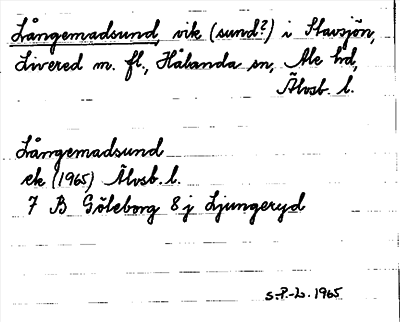 Långemadsund, vik (sund?) i Stavsjön,
Livered m. fl., Hålanda sn, Ale hd,
Älvsb. l.
Långemadsund
ek (1965) Älvsb. l.
7 B Göteborg 8 j Ljungeryd
S.P.-L. 1965